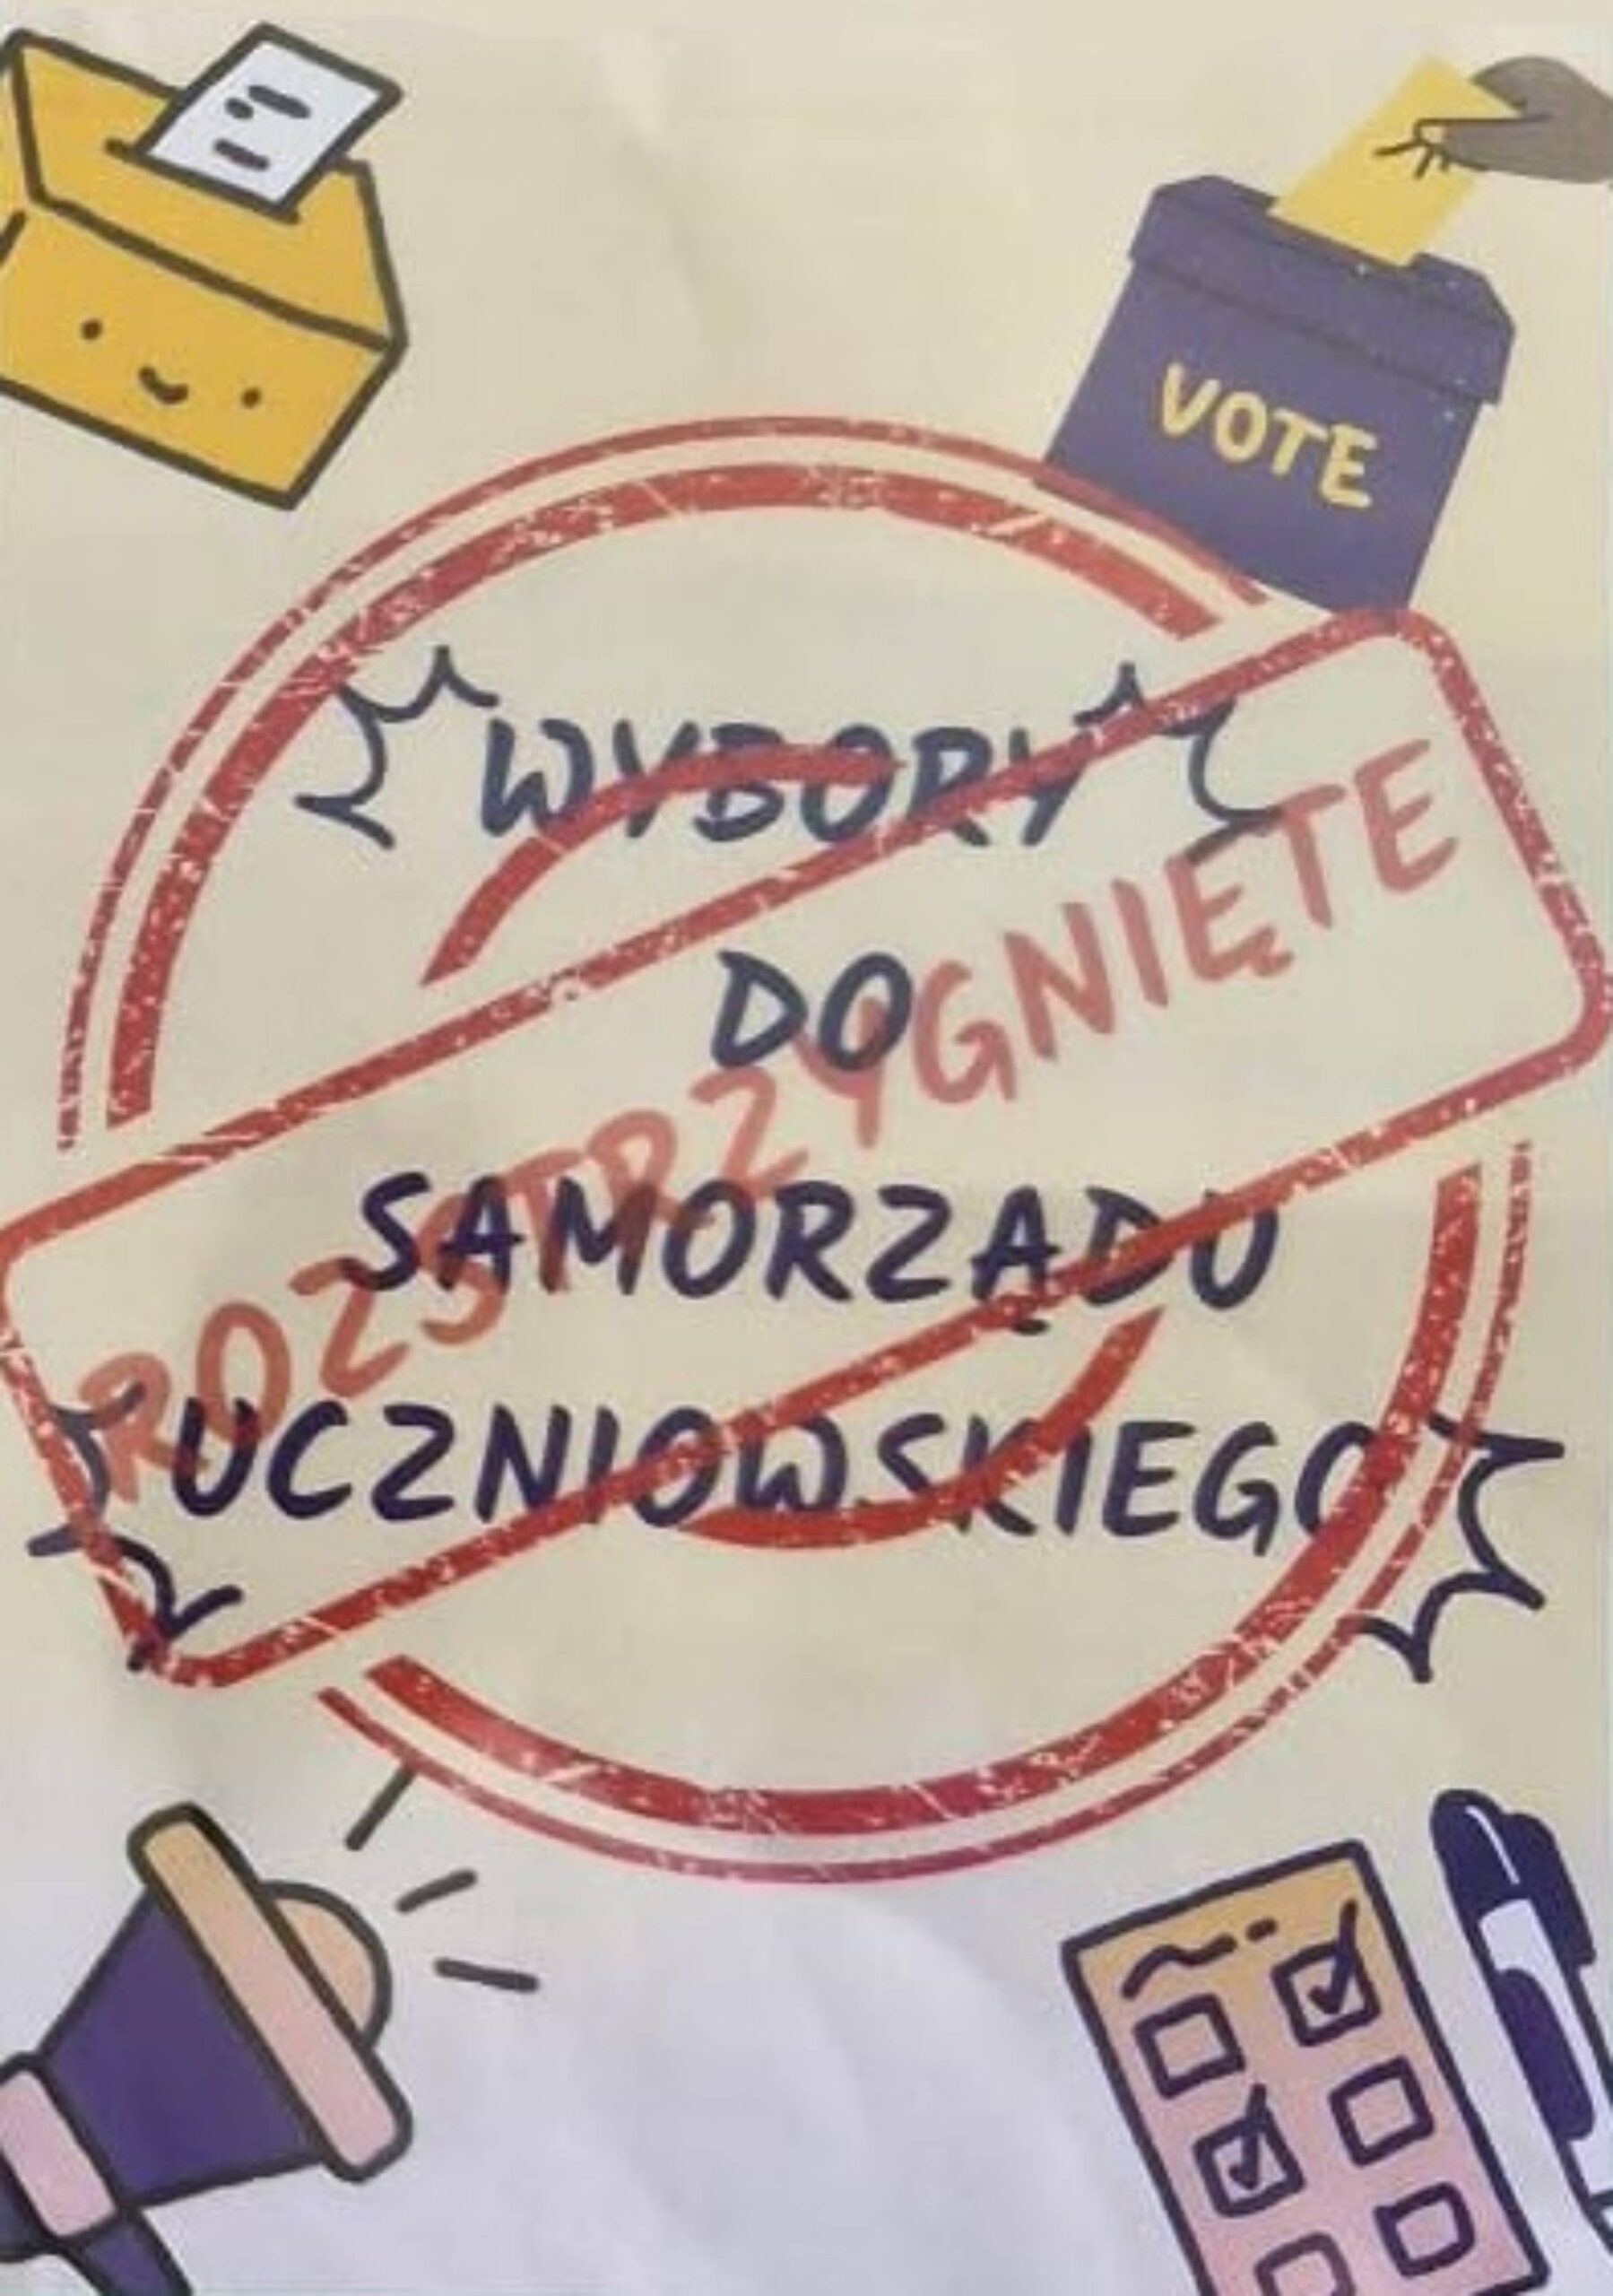 VOTE
WYBORY
DO
SAMORZĄDU
UCZNIOWSKIEGO
ROZSTRZYGNIĘTE